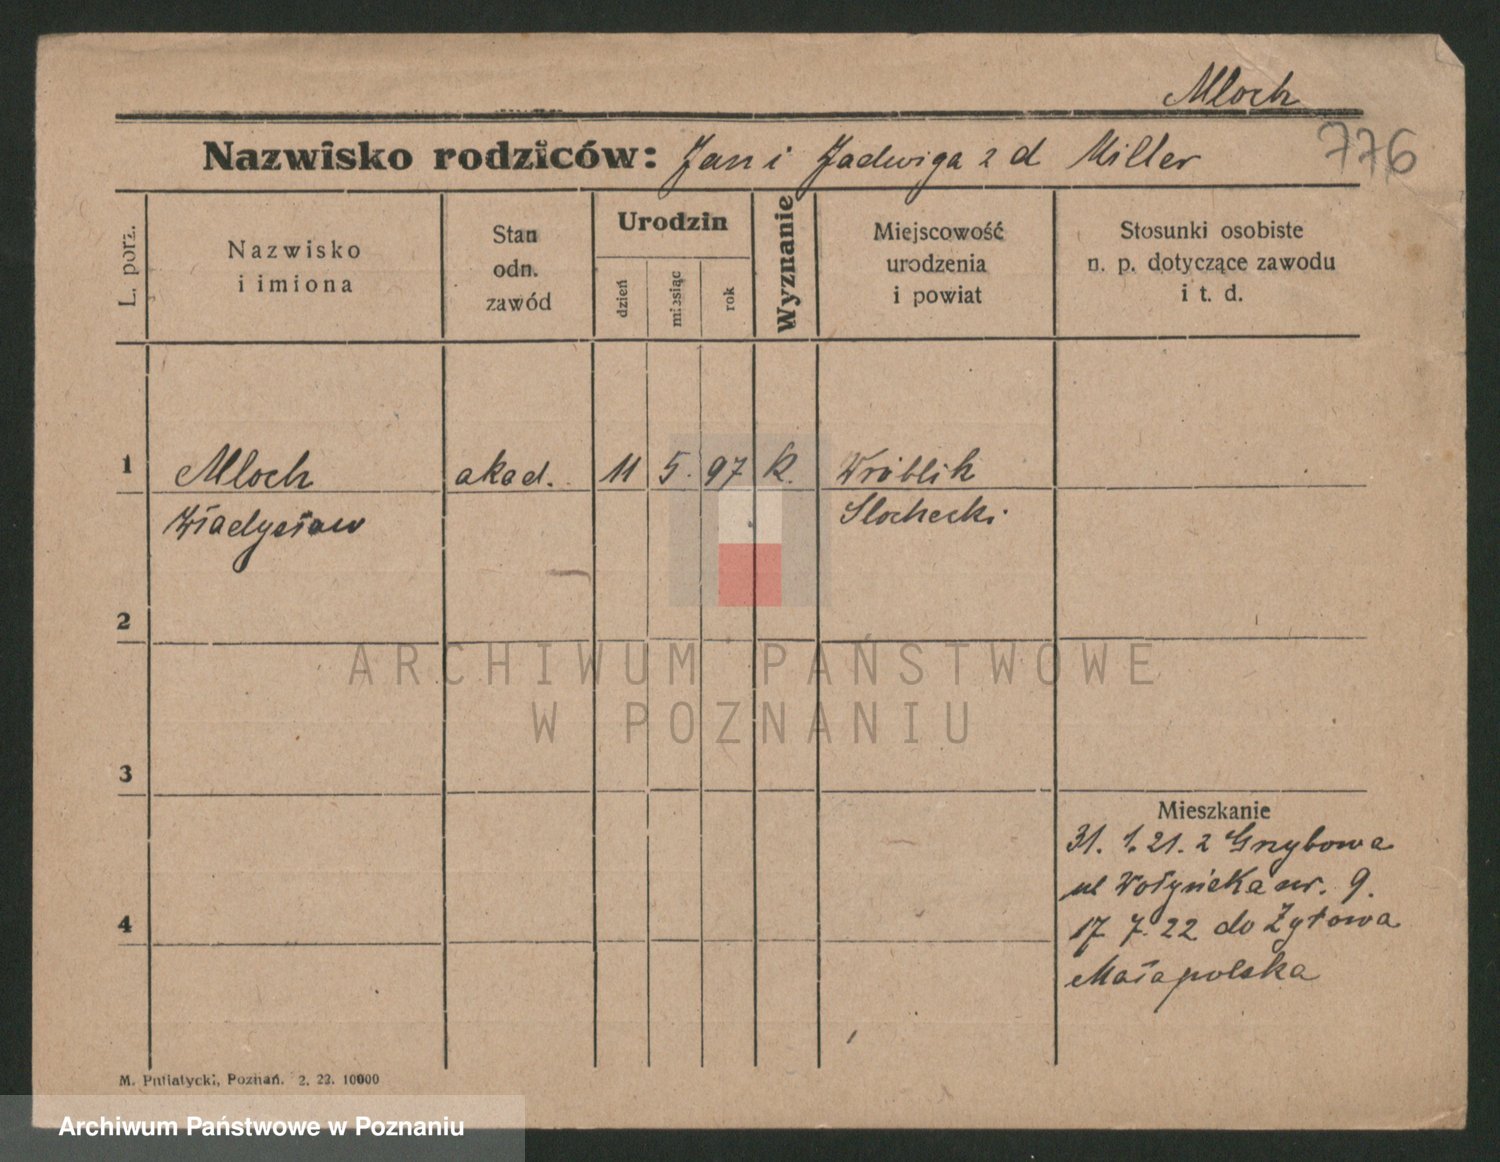 Mloch
776
Nazwisko rodziców: Jan i Jadwiga z d Miller
L. porz.
Nazwisko
i imiona
Stan
odn.
zawód
Urodzin
dzień
miesiąc
rok
Wyznanie
Miejscowość
urodzenia
i powiat
Stosunki osobiste
n. p. dotyczące zawodu
i t. d.
1
Mloch akad. 11 5. 97 k. Wróblik
Władysław Slochecki
2
ARCHIWUM PAŃSTWOWE
W POZNANIU
3
Mieszkanie
31. 1. 21. z Grzybowa
ul Wołyńska nr. 9.
4
17 7. 22 do Żytowa
Małapolska
M. Putiatycki, Poznań. 2. 22. 10000
Archiwum Państwowe w Poznaniu